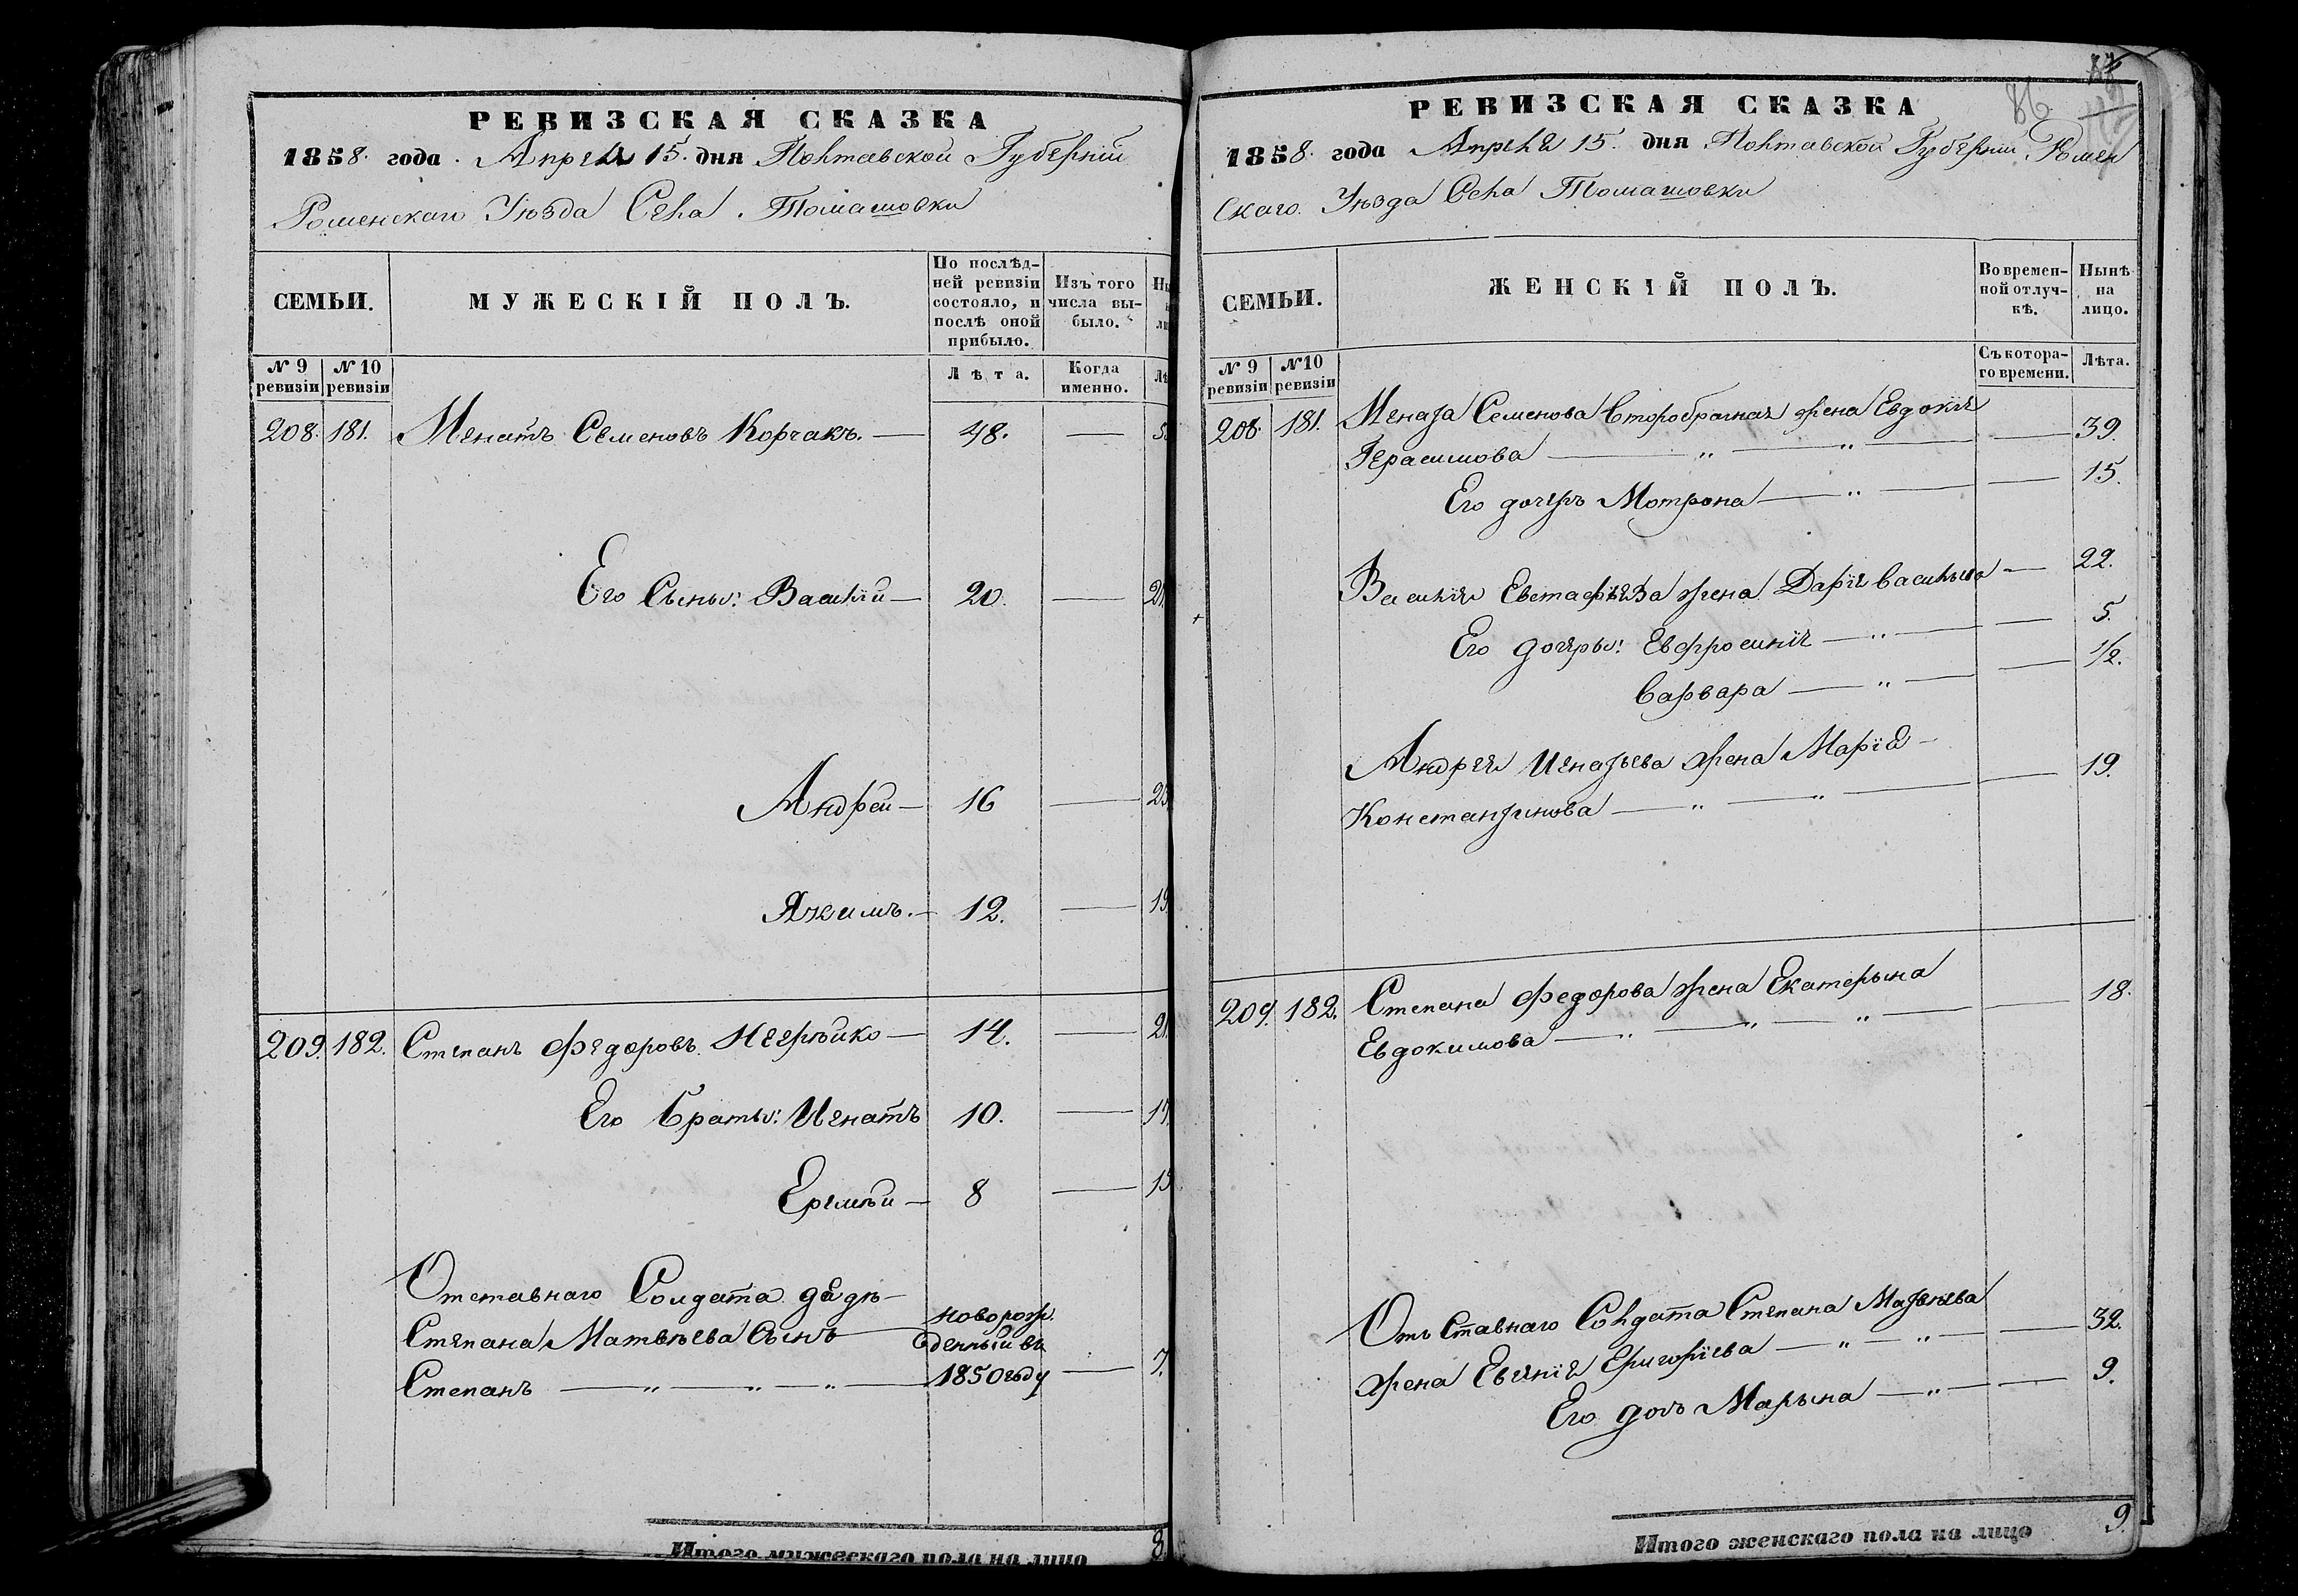 РЕВИЗСКАЯ СКАЗКА
1858. года. Апреля 15. дня Полтавской Губерніи
Роменскаго Уѣзда Села Томашовки
СЕМЬИ.
МУЖЕСКІЙ ПОЛЪ.
По послѣд-
ней ревизіи
состояло, и
послѣ оной
прибыло.
Изъ того
числа вы-
было.
№ 9
ревизіи
№ 10
ревизіи
Лѣта.
Когда
именно.
208. 181. Игнатъ Семеновъ Корчакъ. — 48. —
Его Сыны: Василій — 20. —
Андрей — 16 —
Якимъ. — 12. —
209. 182. Степанъ Федоровъ — 14. — 21.
Его Браты: Игнатъ 10. — 17.
Еремѣй — 8 — 15
Отставнаго Солдата дядѣ —
Степана Матвѣева Сынъ — новорож.
денный въ
Степанъ — „ — „ — „ — 1850 году — 7.
Итого мужескаго пола на лицо 8.
86
РЕВИЗСКАЯ СКАЗКА
1858. года Апрѣля 15. дня Полтавской Губерніи Ромен
скаго. Уѣзда Села Томашовки
СЕМЬИ.
ЖЕНСКІЙ ПОЛЪ.
Во времен-
ной отлуч-
кѣ.
Нынѣ
на
лицо.
№ 9
ревизіи
№ 10
ревизіи
Съ котора-
го времени.
Лѣта.
208. 181. Игната Семенова Второбрачная жена Евдокія
Герасимова — „ — „ — — 39.
Его дочерь Мотрона — „ — — 15.
Василія Евстафѣева жена Дарія Васильева — 22.
Его дочеры: Евфросинія — „ — — 5.
Варвара — „ — — 1/2.
Андрея Игнатьева жена Марія —
Константинова — „ — „ — — 19.
209. 182. Степана Федорова жена Екатерына
Евдокимова — „ — „ — „ — — 18.
Отъ Ставнаго Солдата Степана Матвѣева
жена Евгенія Григоріева — „ — „ — — 32.
Его дочь Марына — „ — — 9.
Итого женскаго пола на лицо 9.